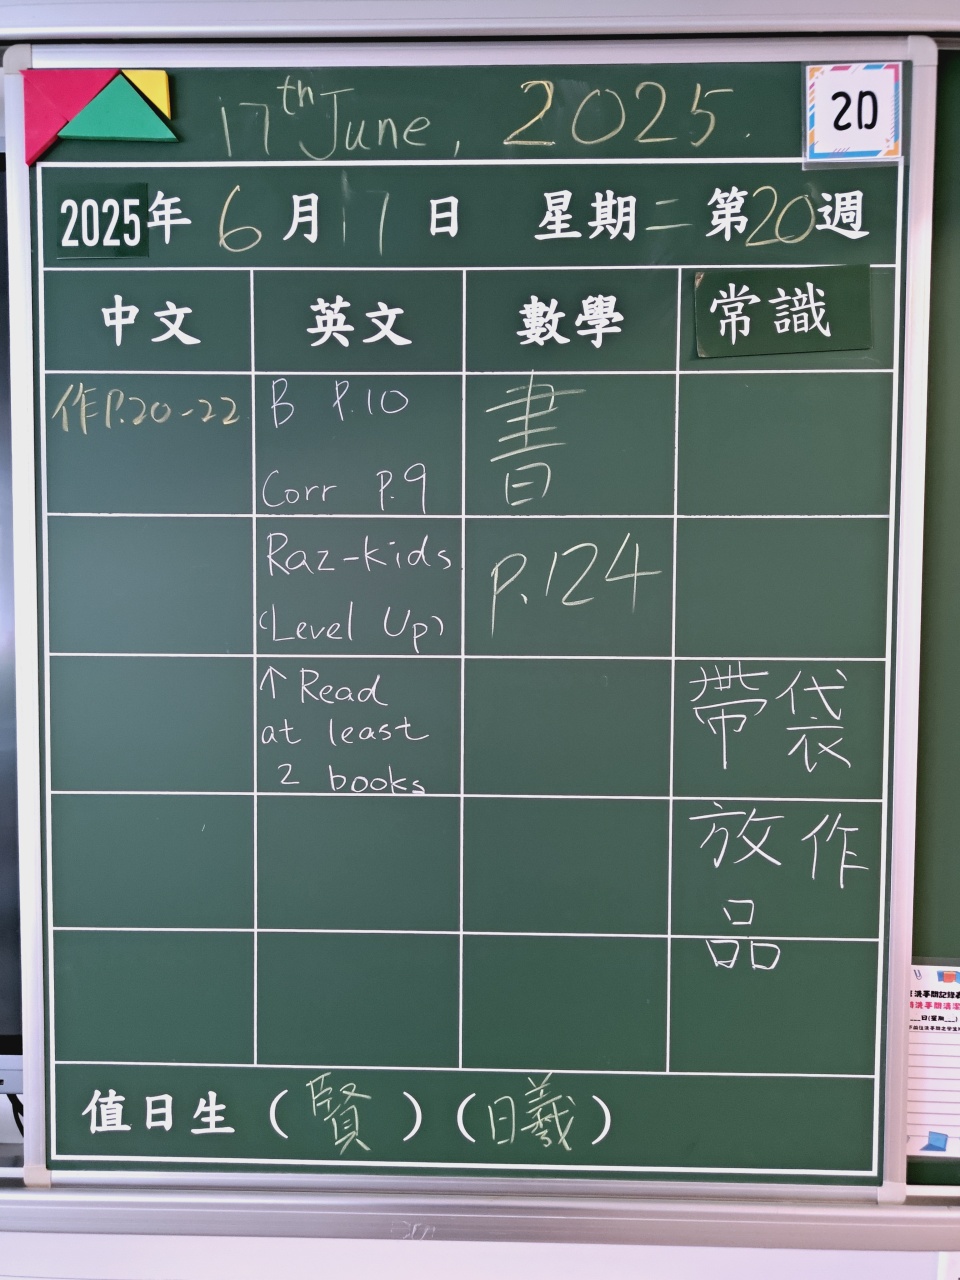 17th June, 2025.
2D
2025年6月17日 星期二 第20週
中文 英文 數學 常識
作P.20-22
B P.10
Corr P.9
書
P.124
Raz-kids
(Level Up)
↑ Read
at least
2 books
帶袋
放作
品
值日生（賢）（曦）